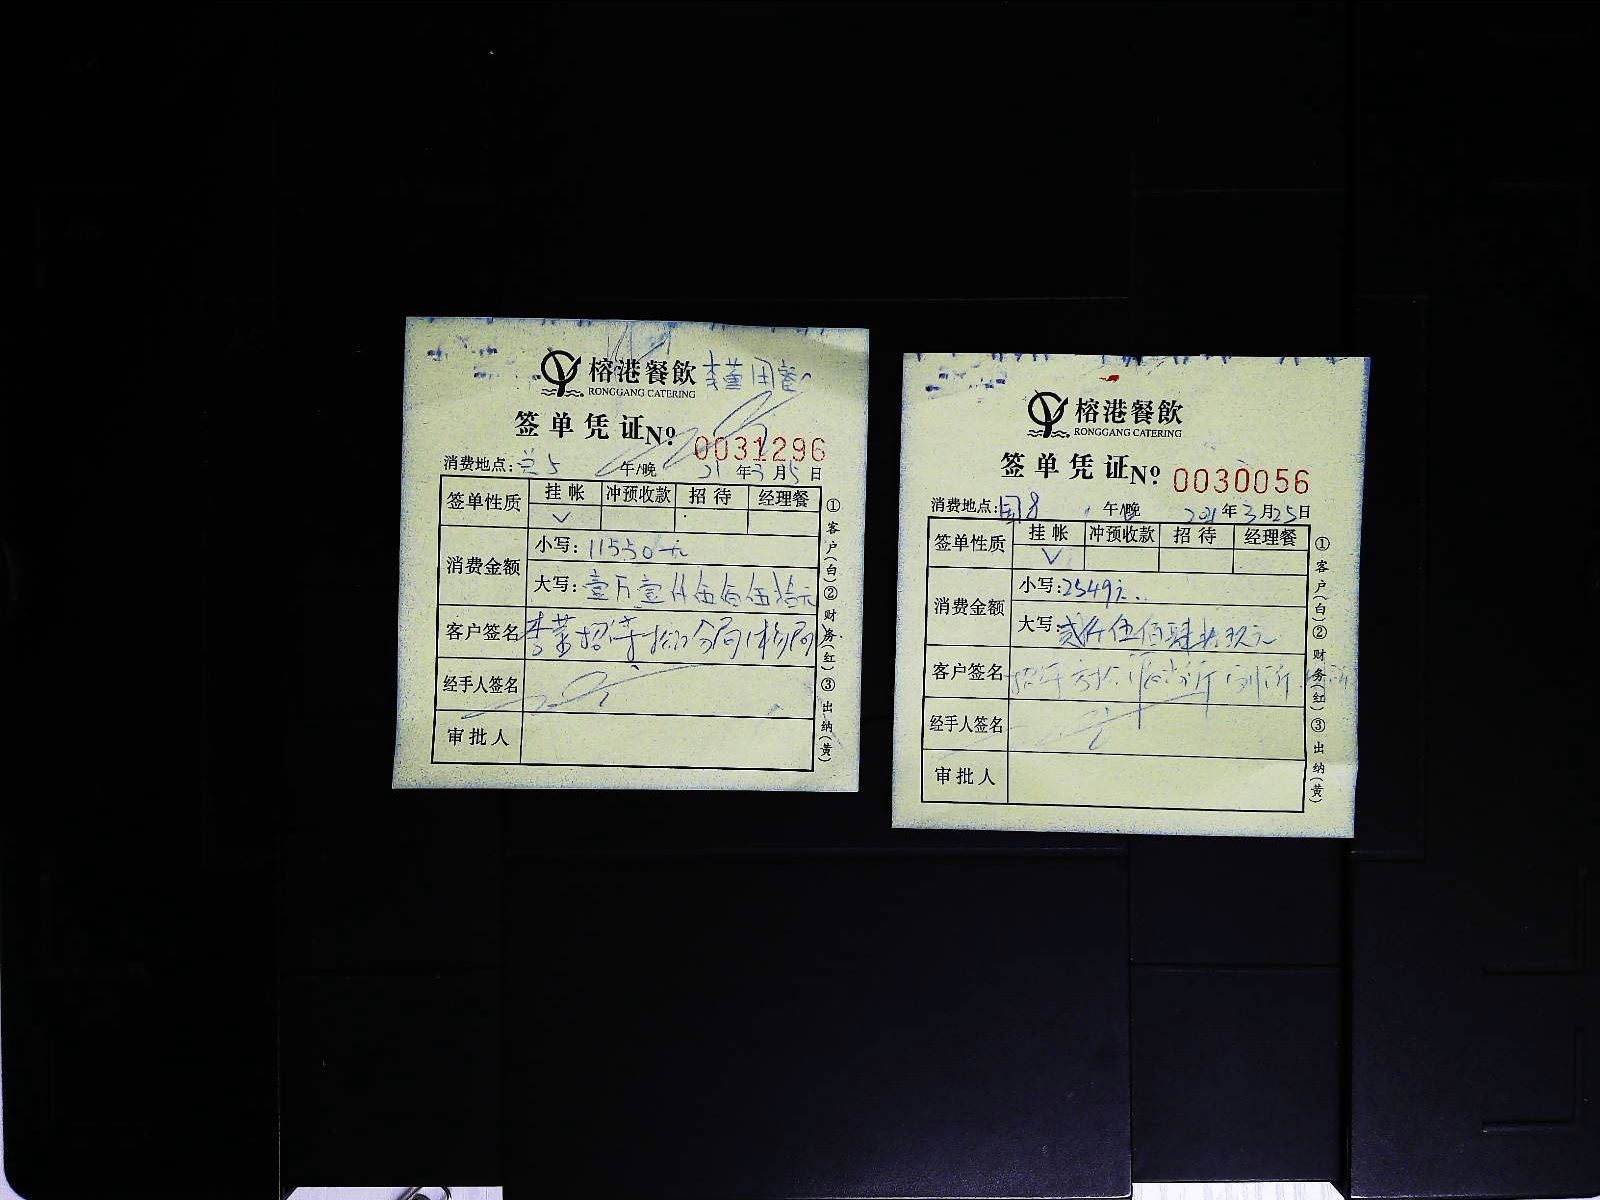 李董用餐
榕港餐飲
RONGGANG CATERING
签单凭证 No. 0031296
消费地点: 午/晚 21年3月5日
签单性质 挂帐 冲预收款 招待 经理餐
✓
消费金额 小写: 11550元
大写: 壹万壹仟伍佰伍拾元
客户签名 招待
经手人签名
审批人
①客户(白)②财务(红)③出纳(黄)
榕港餐飲
RONGGANG CATERING
签单凭证 No. 0030056
消费地点: 国8 午/晚 2021年3月25日
签单性质 挂帐 冲预收款 招待 经理餐
✓
消费金额 小写: 2549元
大写: 贰仟伍佰肆拾玖元
客户签名 招待
经手人签名
审批人
①客户(白)②财务(红)③出纳(黄)